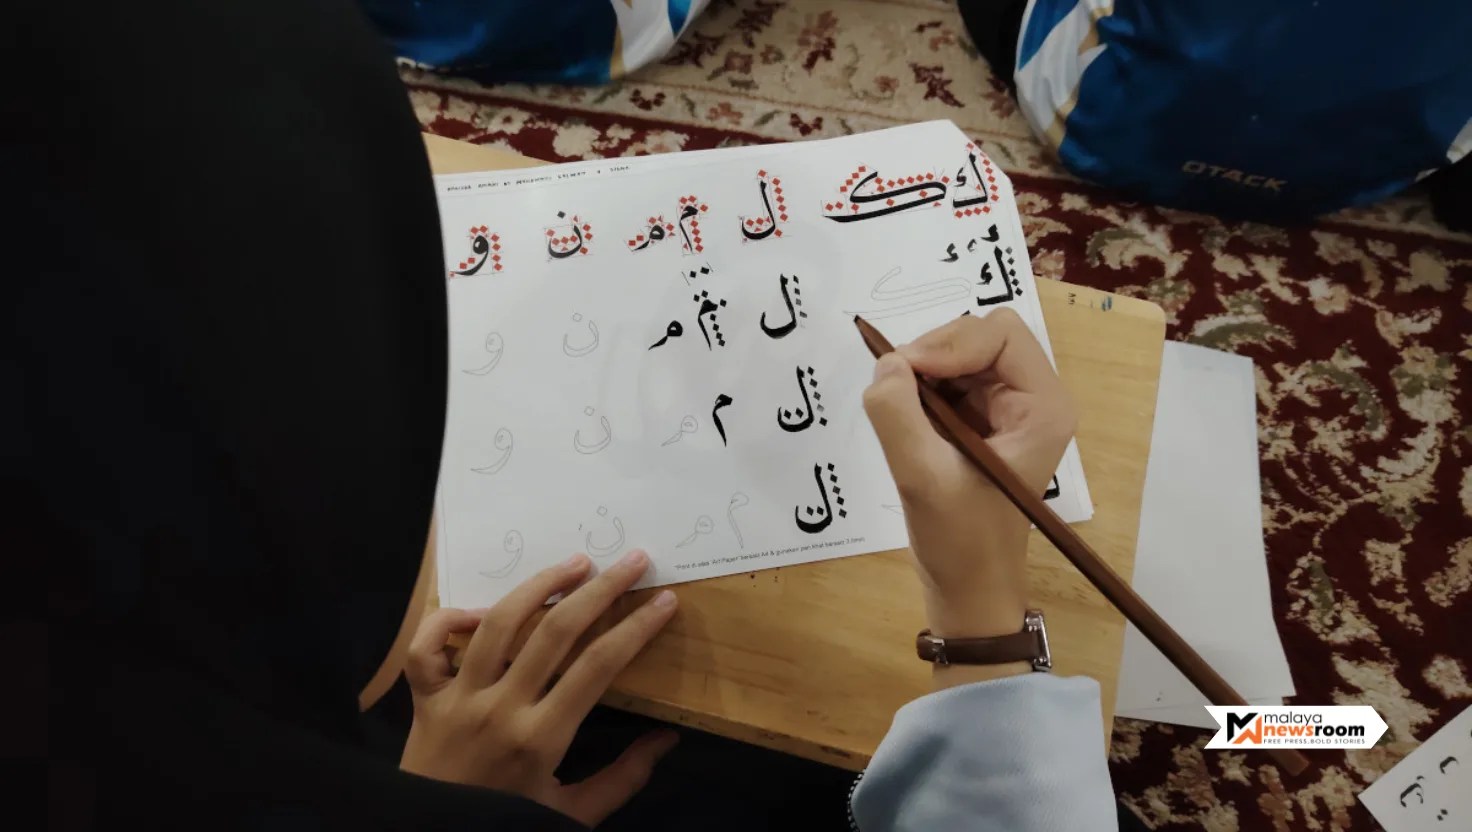 ك ك ل م م ن و
ك ك ل م م ن و
ل م م ن و
ل م م ن و
*Print di atas 'Art Paper' bersaiz A4 & gunakan pen khat bersaiz 3.0mm
OTACK
malaya
newsroom
FREE PRESS.BOLD STORIES